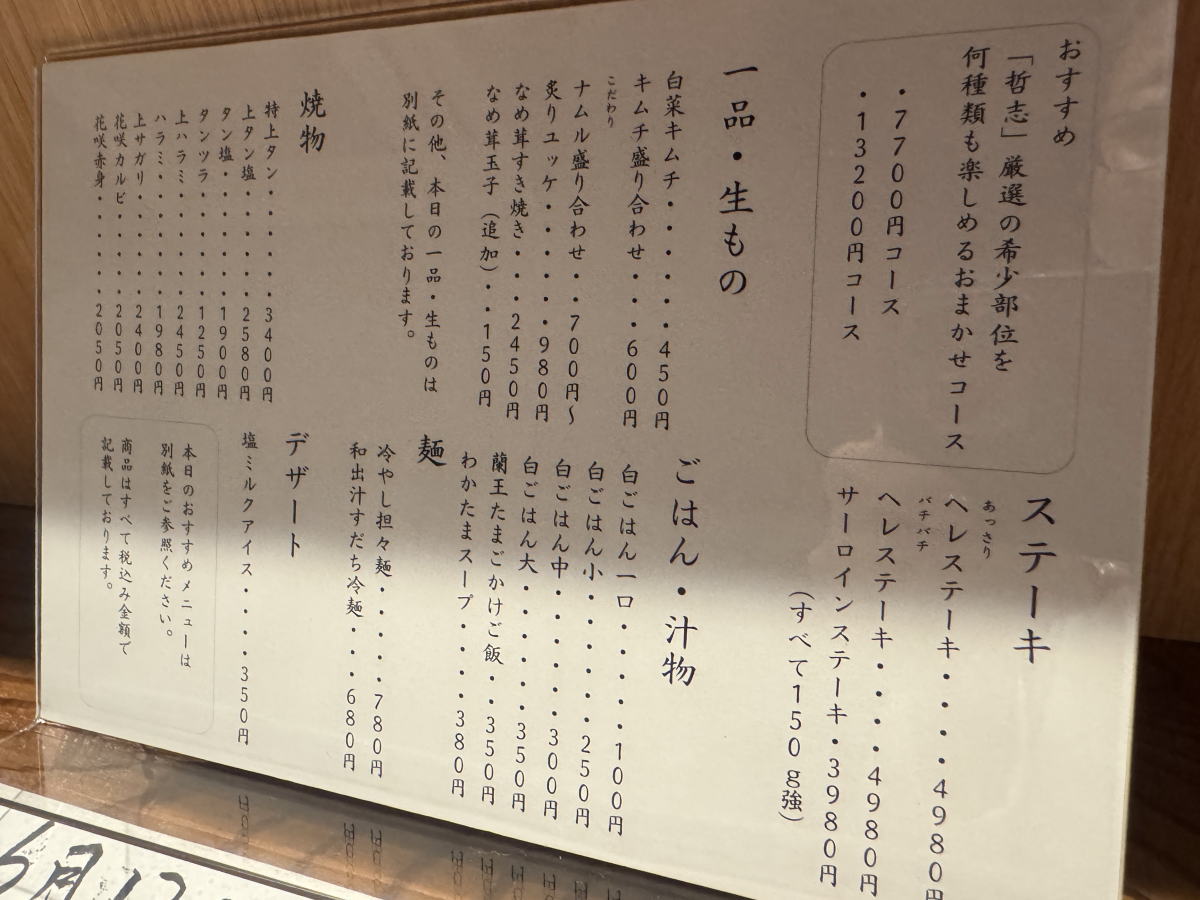 おすすめ
「哲志」厳選の希少部位を
何種類も楽しめるおまかせコース
・7700円コース
・13200円コース
一品・生もの
白菜キムチ・・・・・450円
キムチ盛り合わせ・・・600円
こだわり
ナムル盛り合わせ・・700円~
炙りユッケ・・・・・980円
なめ茸すき焼き・・・2450円
なめ茸玉子（追加）・・150円
その他、本日の一品・生ものは
別紙に記載しております。
焼物
特上タン・・・・・3400円
上タン塩・・・・・2580円
タン塩・・・・・・1900円
タンツラ・・・・・1250円
上ハラミ・・・・・2450円
ハラミ・・・・・・1980円
上サガリ・・・・・2400円
花咲カルビ・・・・2050円
花咲赤身・・・・・2050円
ステーキ
あっさり
ヘレステーキ・・・・4980円
バチバチ
ヘレステーキ・・・・4980円
サーロインステーキ・3980円
（すべて150g強）
ごはん・汁物
白ごはん一口・・・・・100円
白ごはん小・・・・・・250円
白ごはん中・・・・・・300円
白ごはん大・・・・・・350円
蘭王たまごかけご飯・・350円
わかたまスープ・・・・380円
麺
冷やし担々麺・・・・・780円
和出汁すだち冷麺・・・680円
デザート
塩ミルクアイス・・・・350円
本日のおすすめメニューは
別紙をご参照ください。
商品はすべて税込み金額で
記載しております。
6月12